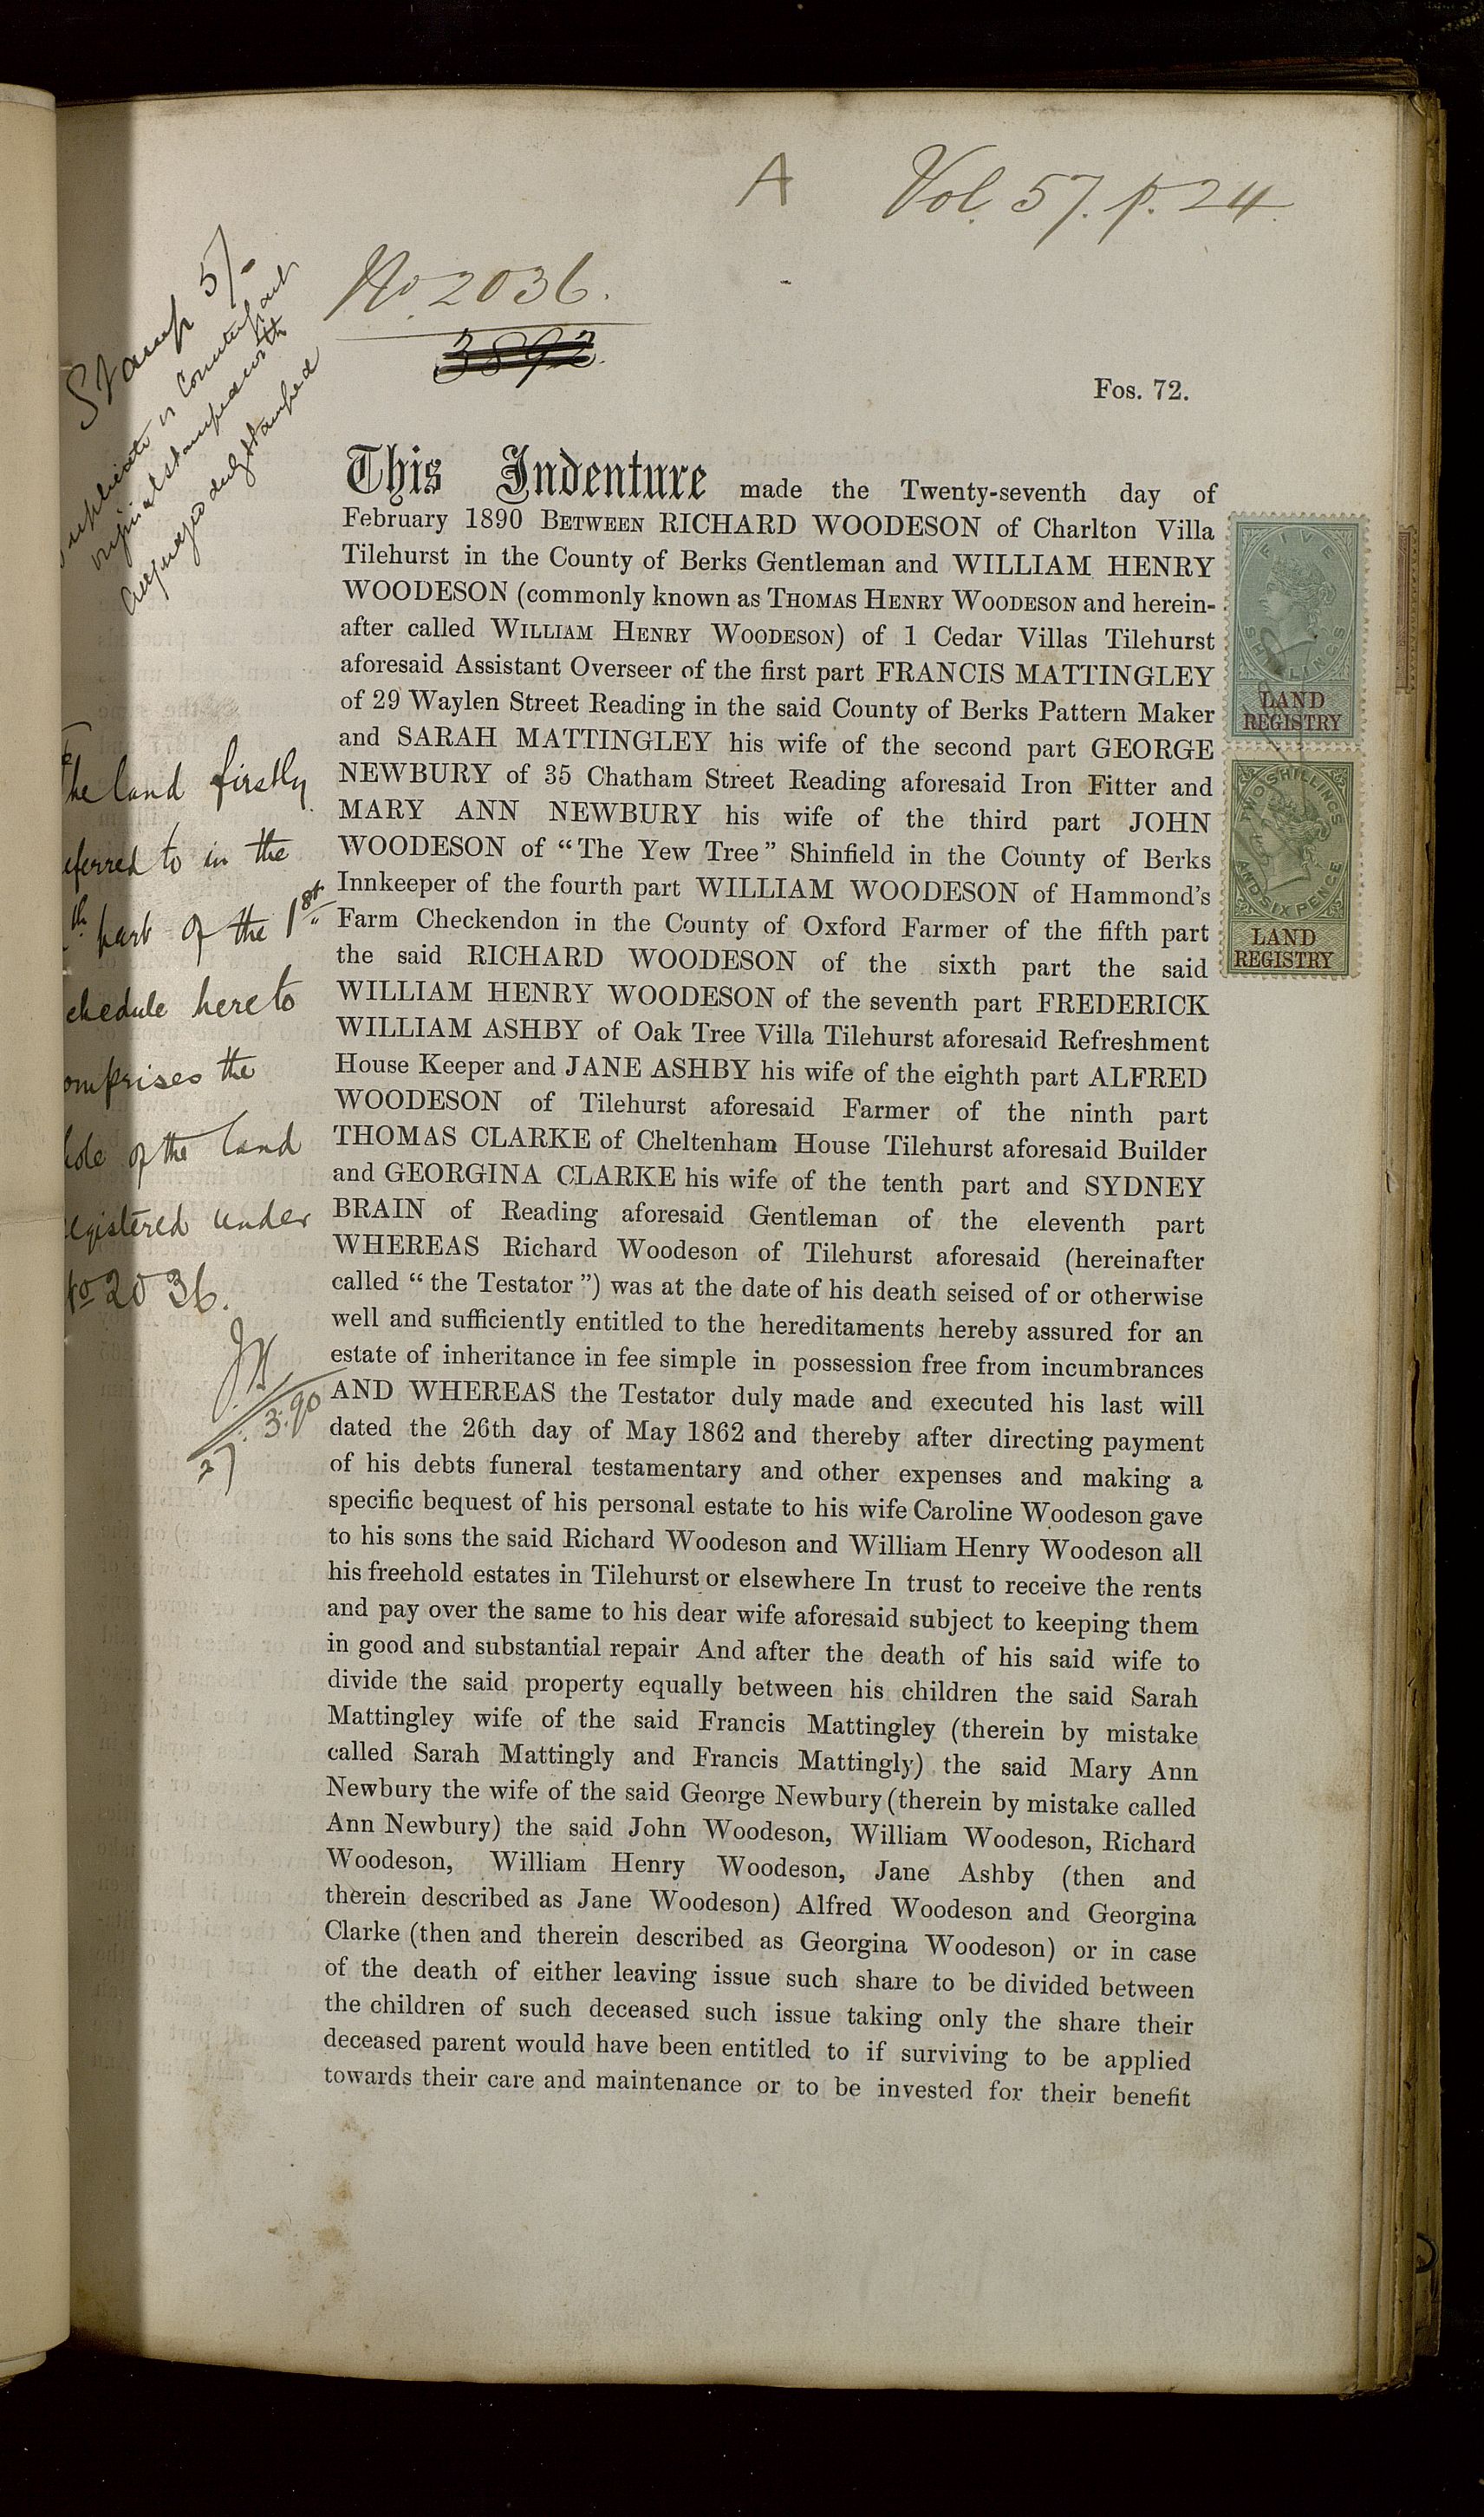 A Vol. 57. p. 24.
No 2036.
3892.
Stamp 5/-
original stamped with
duly stamped
Fos. 72.
This Indenture made the Twenty-seventh day of
February 1890 BETWEEN RICHARD WOODESON of Charlton Villa
Tilehurst in the County of Berks Gentleman and WILLIAM HENRY
WOODESON (commonly known as THOMAS HENRY WOODESON and herein-
after called WILLIAM HENRY WOODESON) of 1 Cedar Villas Tilehurst
aforesaid Assistant Overseer of the first part FRANCIS MATTINGLEY
of 29 Waylen Street Reading in the said County of Berks Pattern Maker
and SARAH MATTINGLEY his wife of the second part GEORGE
NEWBURY of 35 Chatham Street Reading aforesaid Iron Fitter and
MARY ANN NEWBURY his wife of the third part JOHN
WOODESON of “The Yew Tree” Shinfield in the County of Berks
Innkeeper of the fourth part WILLIAM WOODESON of Hammond's
Farm Checkendon in the County of Oxford Farmer of the fifth part
the said RICHARD WOODESON of the sixth part the said
WILLIAM HENRY WOODESON of the seventh part FREDERICK
WILLIAM ASHBY of Oak Tree Villa Tilehurst aforesaid Refreshment
House Keeper and JANE ASHBY his wife of the eighth part ALFRED
WOODESON of Tilehurst aforesaid Farmer of the ninth part
THOMAS CLARKE of Cheltenham House Tilehurst aforesaid Builder
and GEORGINA CLARKE his wife of the tenth part and SYDNEY
BRAIN of Reading aforesaid Gentleman of the eleventh part
WHEREAS Richard Woodeson of Tilehurst aforesaid (hereinafter
called “the Testator”) was at the date of his death seised of or otherwise
well and sufficiently entitled to the hereditaments hereby assured for an
estate of inheritance in fee simple in possession free from incumbrances
AND WHEREAS the Testator duly made and executed his last will
dated the 26th day of May 1862 and thereby after directing payment
of his debts funeral testamentary and other expenses and making a
specific bequest of his personal estate to his wife Caroline Woodeson gave
to his sons the said Richard Woodeson and William Henry Woodeson all
his freehold estates in Tilehurst or elsewhere In trust to receive the rents
and pay over the same to his dear wife aforesaid subject to keeping them
in good and substantial repair And after the death of his said wife to
divide the said property equally between his children the said Sarah
Mattingley wife of the said Francis Mattingley (therein by mistake
called Sarah Mattingly and Francis Mattingly) the said Mary Ann
Newbury the wife of the said George Newbury (therein by mistake called
Ann Newbury) the said John Woodeson, William Woodeson, Richard
Woodeson, William Henry Woodeson, Jane Ashby (then and
therein described as Jane Woodeson) Alfred Woodeson and Georgina
Clarke (then and therein described as Georgina Woodeson) or in case
of the death of either leaving issue such share to be divided between
the children of such deceased such issue taking only the share their
deceased parent would have been entitled to if surviving to be applied
towards their care and maintenance or to be invested for their benefit
he land firstly
eferred to in the
th part of the 1st
chedule hereto
omprises the
hole of the land
egistered under
No 2036.
27.3.90
FIVE SHILLINGS
LAND
REGISTRY
TWO SHILLINGS
AND SIX PENCE
LAND
REGISTRY